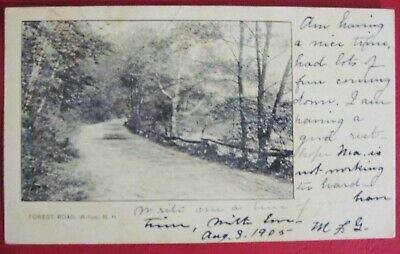 Am having
a nice time,
had lots of
fun coming
down. I am
having a
good rest.
hope Ma. is
not working
to hard
FOREST ROAD, Wilton, N. H.
Write am a
time, With love
Aug. 3. 1905
M. L. G.